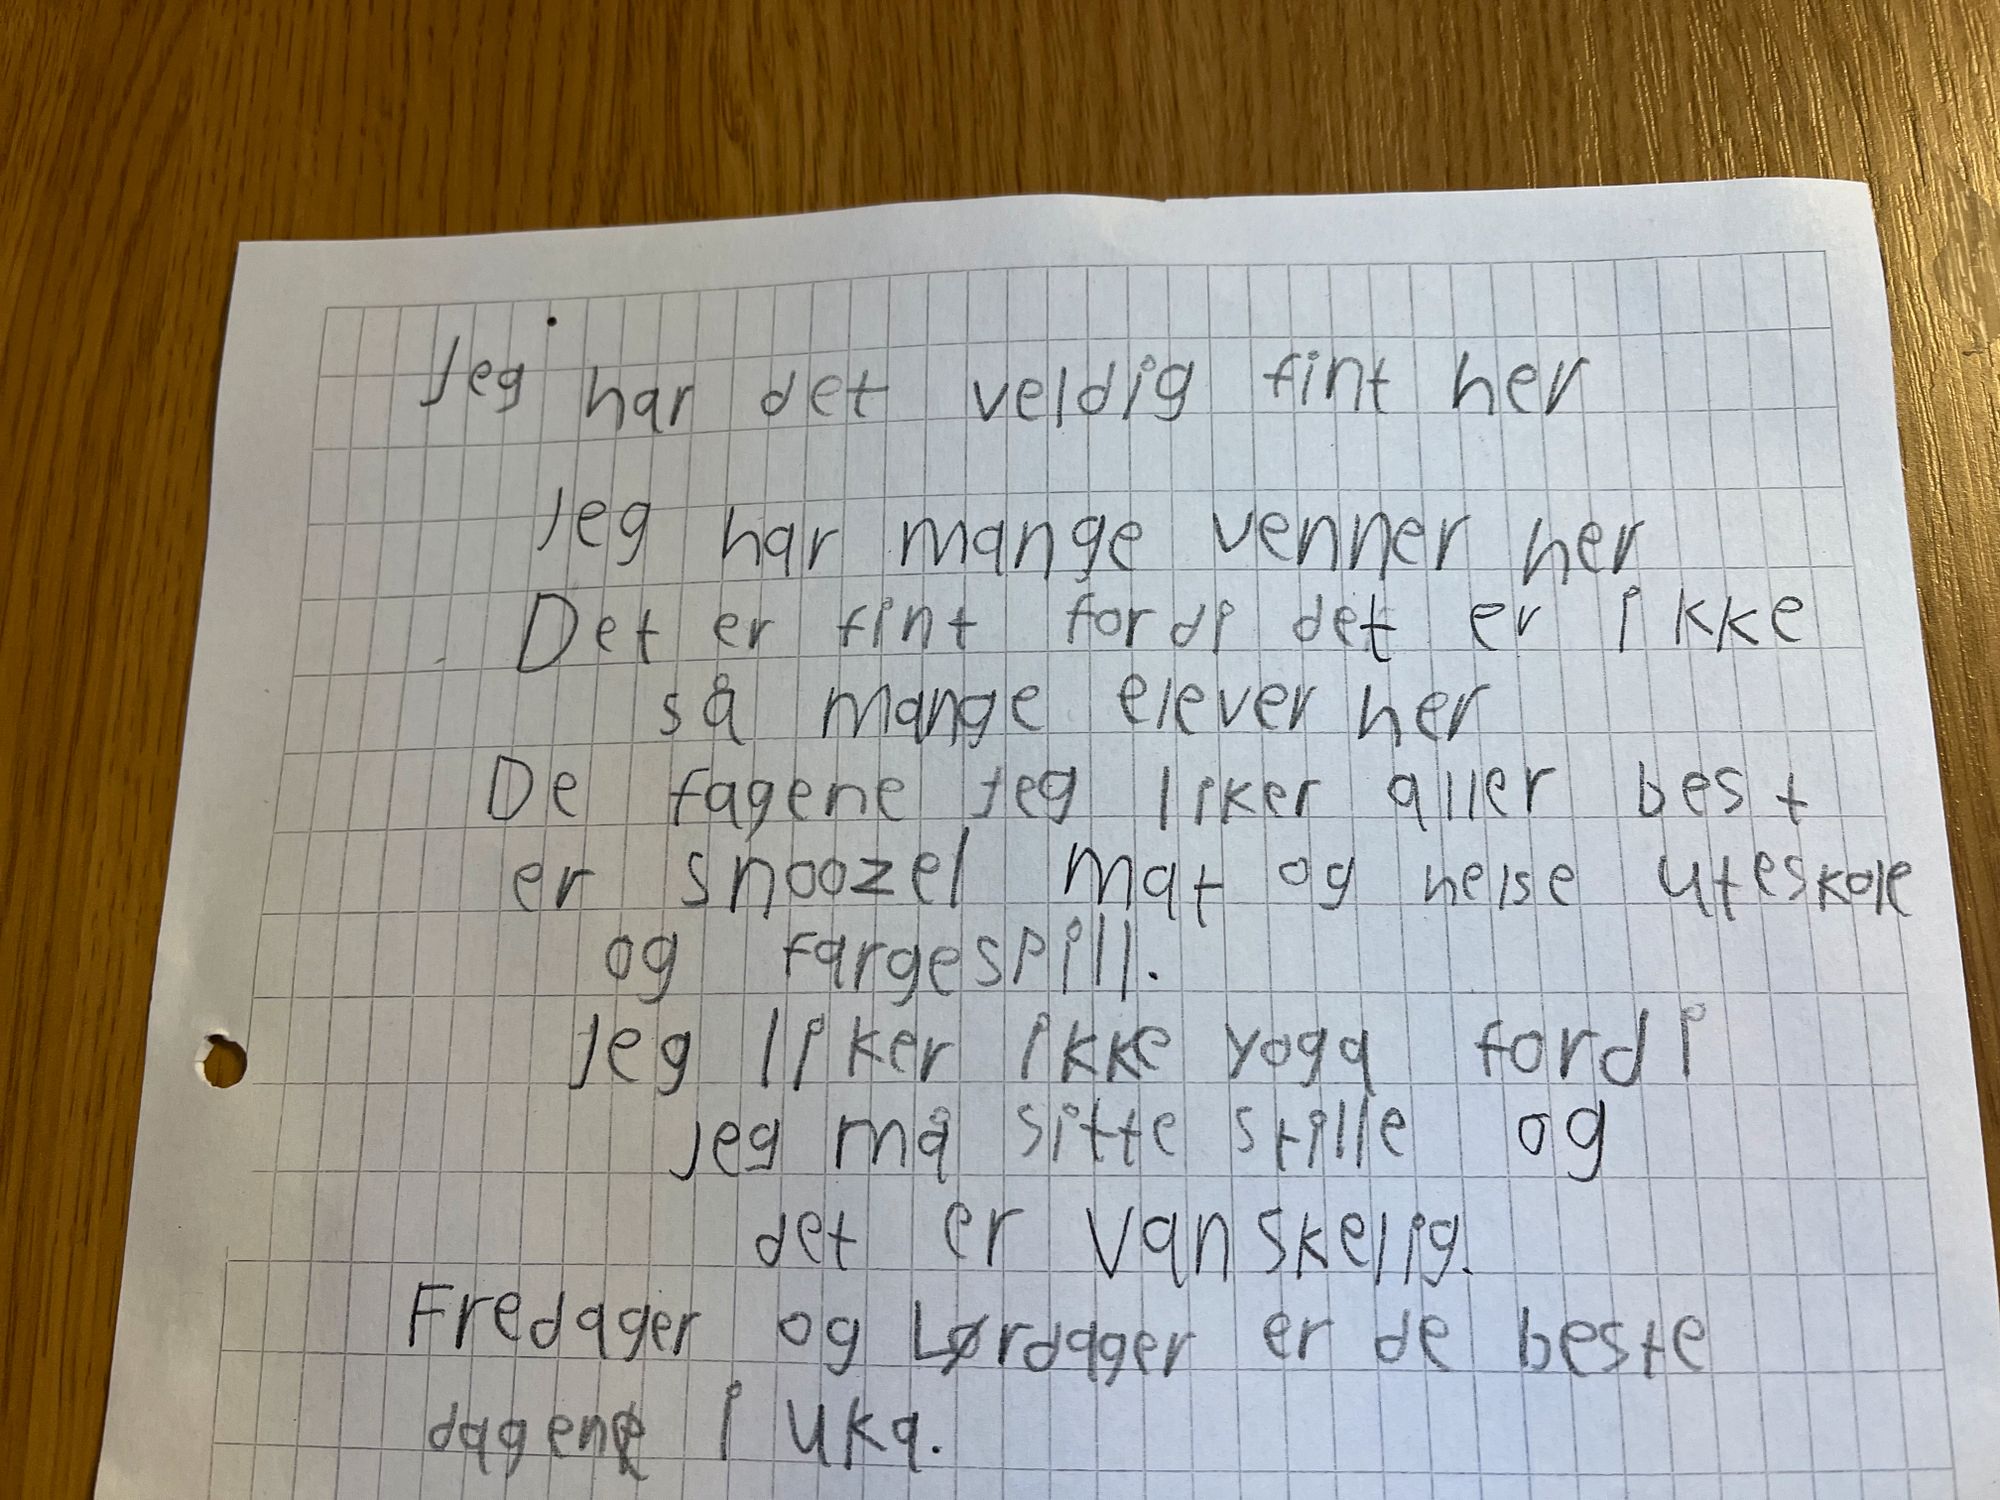 Jeg har det veldig fint her
Jeg har mange venner her
Det er fint fordi det er ikke
så mange elever her
De fagene jeg liker aller best
er snoozel mat og helse uteskole
og fargespill.
Jeg liker ikke yoga fordi
jeg må sitte stille og
det er vanskelig.
Fredager og Lørdager er de beste
dagene i uka.